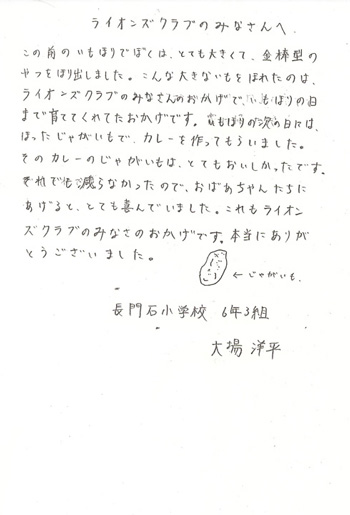 ライオンズクラブのみなさんへ
この前のいもほりでぼくは、とても大きくて、金棒型の
やつをほり出しました。こんな大きないもをほれたのは、
ライオンズクラブのみなさんのおかげで、いもほりの日
まで育ててくれてたおかげです。いもほりの次の日には、
ほったじゃがいもで、カレーを作ってもらいました。
そのカレーのじゃがいもは、とてもおいしかったです。
それでも減らなかったので、おばあちゃんたちに
あげると、とても喜んでいました。これもライオン
ズクラブのみなさのおかげです。本当にありが
とうございました。
←じゃがいも。
長門石小学校 6年3組
大場 洋平